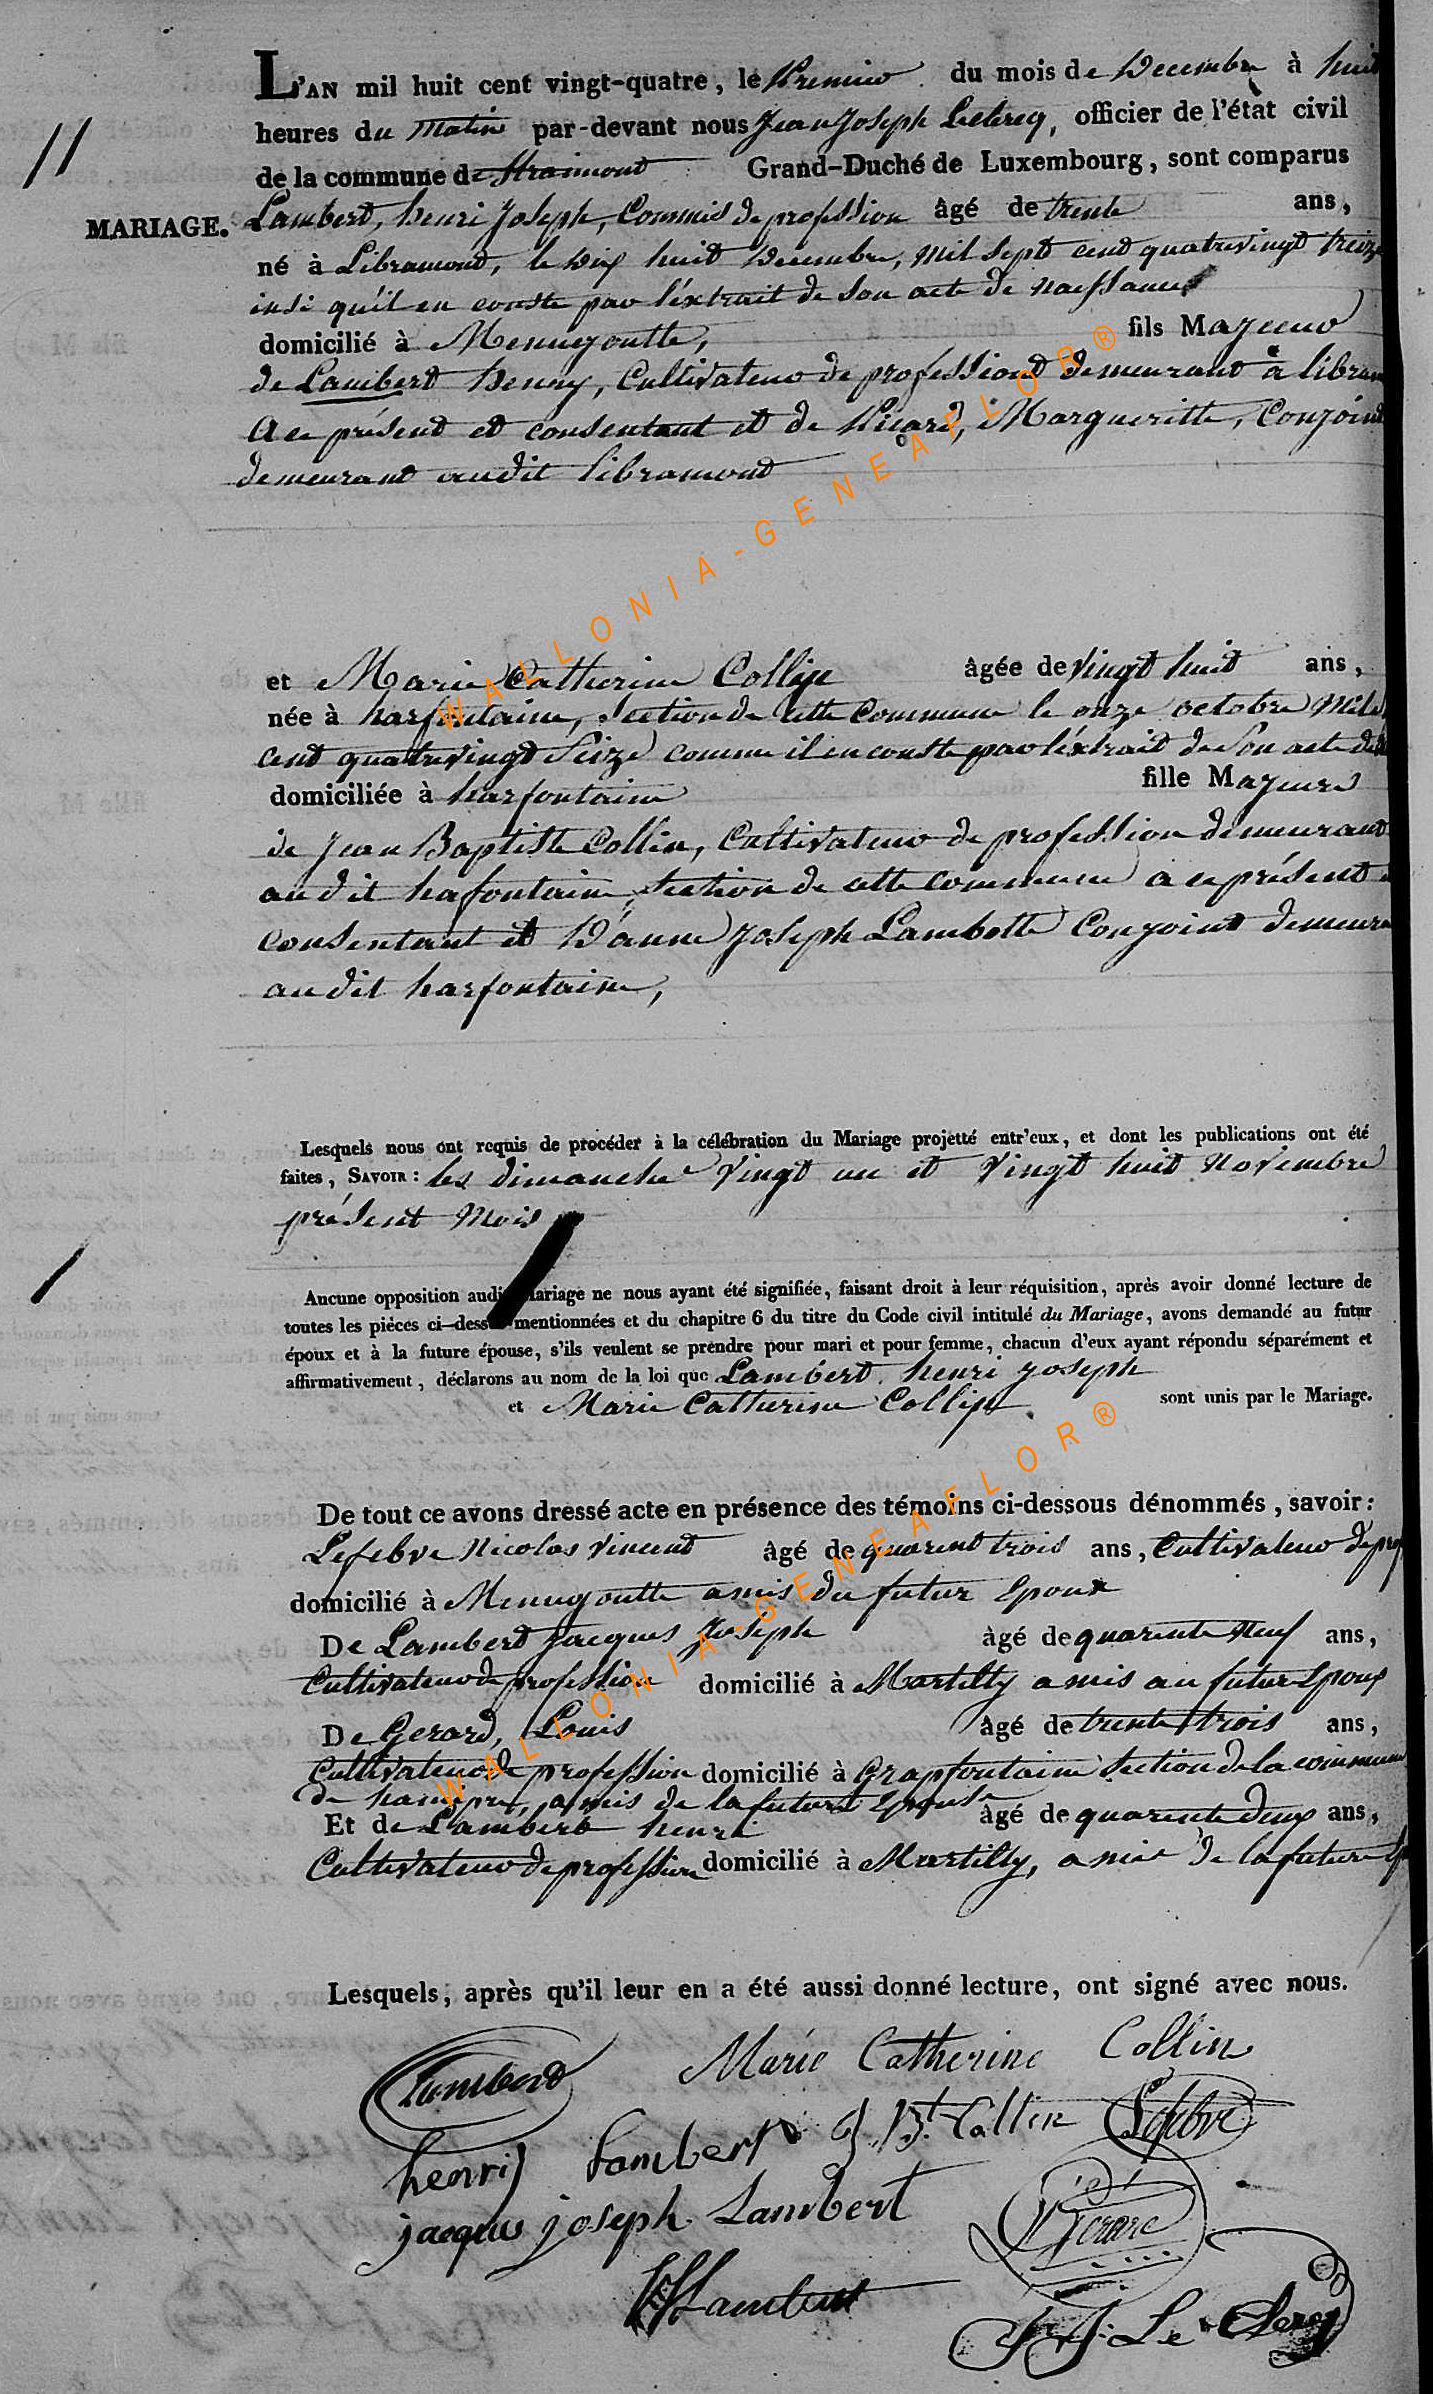 L'AN mil huit cent vingt-quatre, le Premier du mois de Decembre à huit
heures du Matin par-devant nous Jean Joseph Leclercq, officier de l'état civil
de la commune de Straimont Grand-Duché de Luxembourg, sont comparus
11
MARIAGE. Lambert, henri Joseph, Commis de profession âgé de trente ans,
né à Libramont, le Dix huit Decembre, mil sept cent quatrevingt treize
insi qu'il en conste par l'éxtrait de son acte de naissance
domicilié à Menugoutte, fils Majeur
de Lambert Henry, Cultivateur de profession demeurant à libram
a ce présent et consentant et de Picard, Margueritte, Conjoint
demeurant audit libramont
et Marie Catherine Collin âgée de Vingt huit ans,
née à harfontaine, Section de cette Commune le onze octobre Mil
cent quatrevingt Seize comme il en conste par l'éxtrait de Son acte de
domiciliée à harfontaine fille Majeure
de Jean Baptiste Collin, Cultivateur de profession demeurant
audit hafontaine, Section de cette commune a ce présent
Consentant et D'anne Joseph Lambotte Conjoint demeur
audit harfontaine,
Lesquels nous ont requis de procéder à la célébration du Mariage projetté entr'eux, et dont les publications ont été
faites, SAVOIR: les dimanche Vingt un et Vingt huit Novembre
présent Mois
Aucune opposition audit Mariage ne nous ayant été signifiée, faisant droit à leur réquisition, après avoir donné lecture de
toutes les pièces ci-dessus mentionnées et du chapitre 6 du titre du Code civil intitulé du Mariage, avons demandé au futur
époux et à la future épouse, s'ils veulent se prendre pour mari et pour femme, chacun d'eux ayant répondu séparément et
affirmativement, déclarons au nom de la loi que Lambert. henri Joseph
et Marie Catherine Collin sont unis par le Mariage.
De tout ce avons dressé acte en présence des témoins ci-dessous dénommés, savoir:
Lefebvre Nicolas Vincent âgé de quarent trois ans, Cultivateur de pro
domicilié à Menugoutte amis du futur Epoux
De Lambert Jacques Joseph âgé de quarente Neuf ans,
Cultivateur de profession domicilié à Martilly amis au futur Epoux
De Gerard, Louis âgé de trente trois ans,
Cultivateur de profession domicilié à Grapfontaine Section de la commune
de hamipré, amis de la future Epouse
Et de Lambert henri âgé de quarente deux ans,
Cultivateur de profession domicilié à Martilly, amis de la future Ep
Lesquels, après qu'il leur en a été aussi donné lecture, ont signé avec nous.
Lambert Marie Catherine Collin
henrij Lambert J. Bt. Collin Lefebvre
jacques joseph Lambert Gérard
Lambert
J J: Le Clercq
WALLONIA-GENEAFLOR®
WALLONIA-GENEAFLOR®